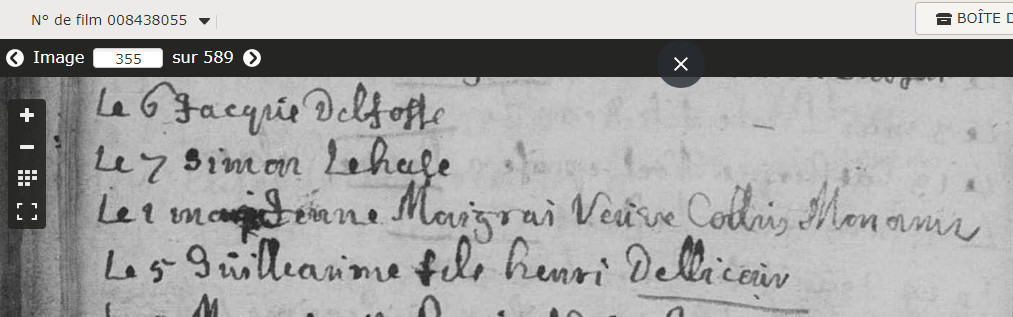 N° de film 008438055
BOÎTE D
Image 355 sur 589
Le 6 Jacque Delfosse
Le 7 Simon Lehale
Le 1 Jenne Maigrai Veuve Collin Monami
Le 5 Guilleaume fils henri Dellicour